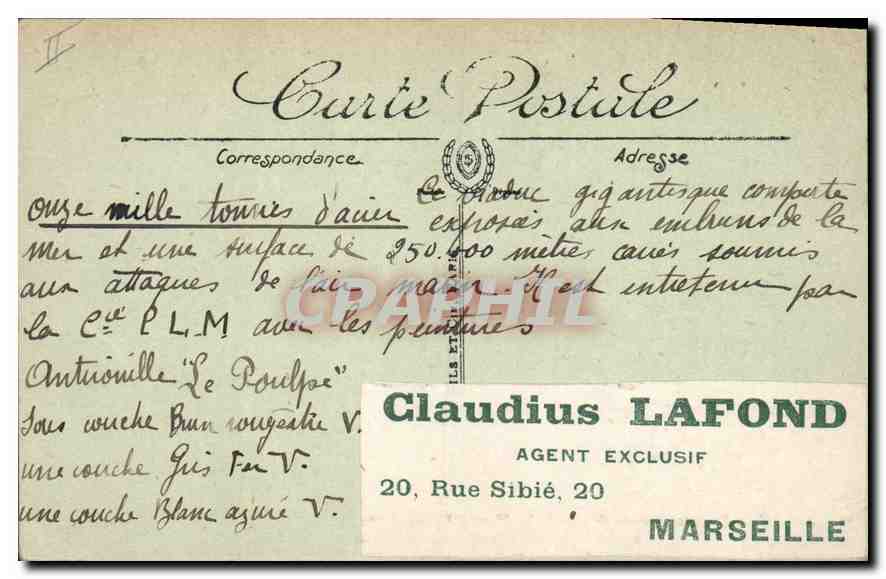 II
Carte Postale
Correspondance
Adresse
Ce viaduc gigantesque comporte
onze mille tonnes d'acier exposés aux embruns de la
mer et une surface de 250.000 mètres carrés soumis
aux attaques de l'air marin. Il est entretenu par
la Cie P L. M avec les peintures
Antirouille "Le Poulpe"
Sous couche Brun rougeâtre V.
une couche Gris Fer V.
une couche Blanc azuré V.
CPAPHIL
ILS ET CIE PARIS
5
Claudius LAFOND
AGENT EXCLUSIF
20, Rue Sibié, 20
MARSEILLE